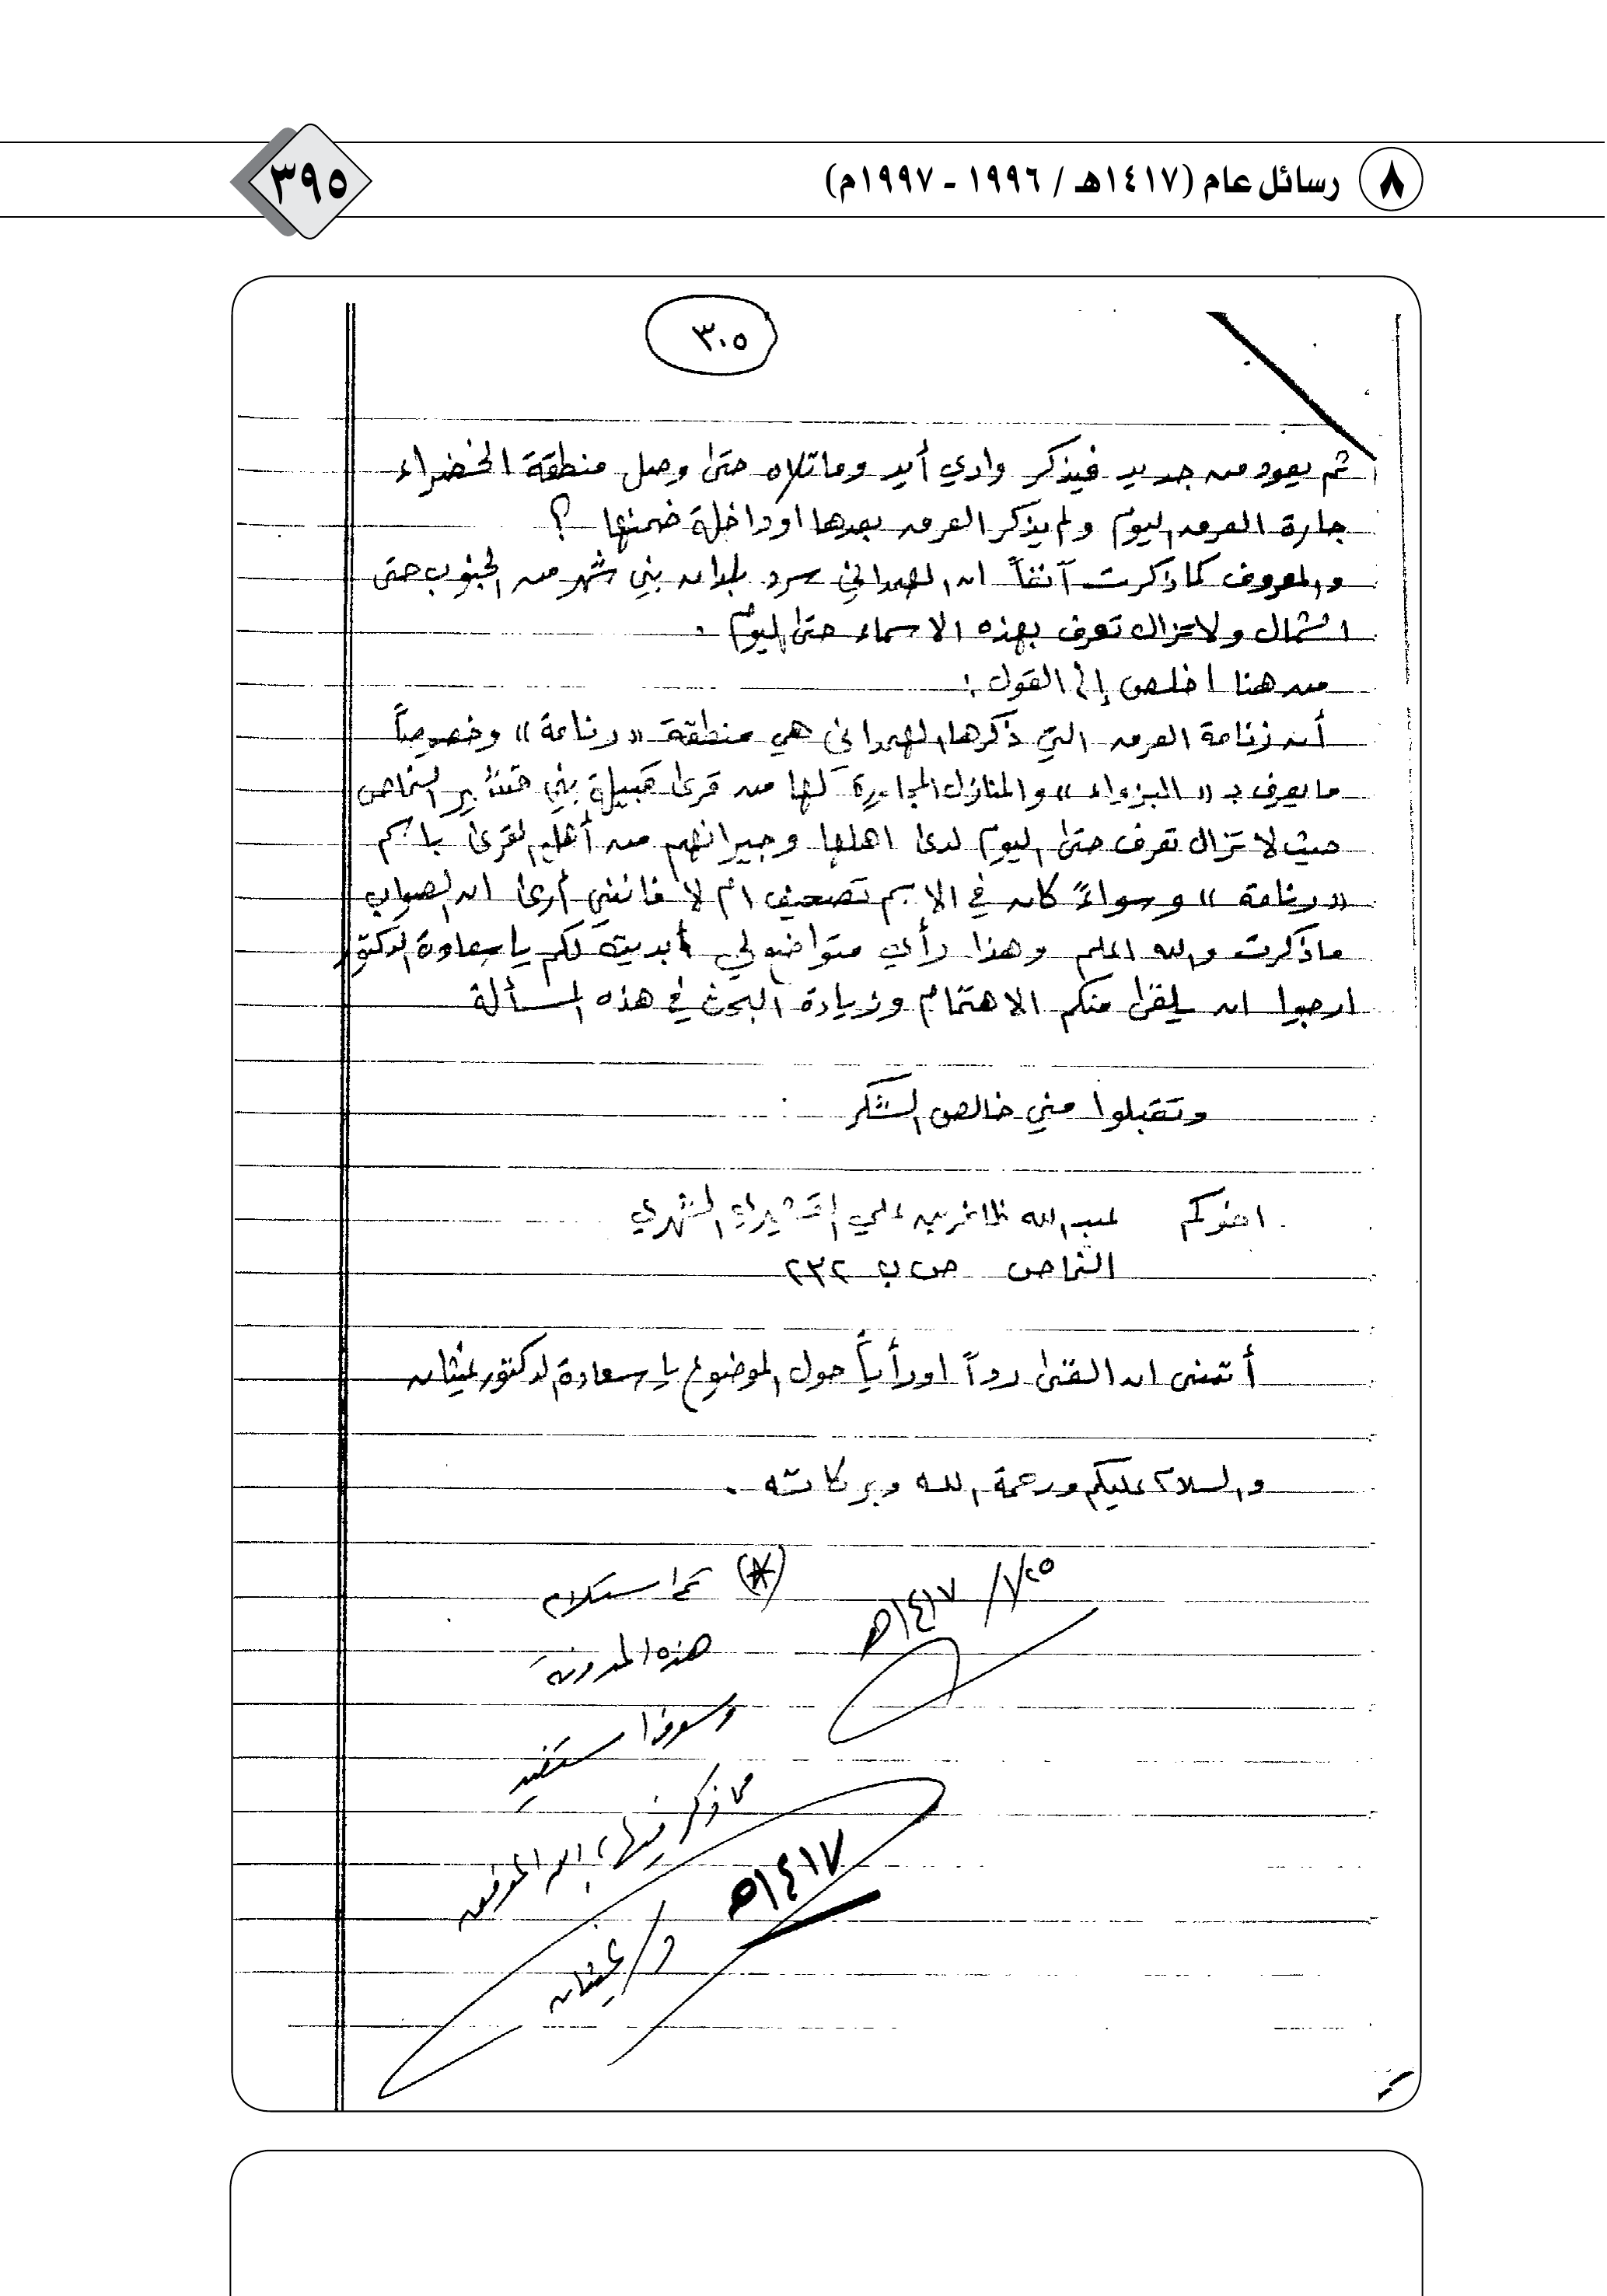 ٨ رسائل عام (١٤١٧هـ / ١٩٩٦ - ١٩٩٧م)
٣٩٥
٣٠٥
ثم يعود من جديد فيذكر وادي أيد وما تلاه حتى وصل منطقة الخضراء
جارة العرمه اليوم ولم يذكر العرمه بعدها او داخلة ضمنها ؟
والمعروف كما ذكرت آنفاً ان الهمداني سرد بلدان بني شهر من الجنوب حتى
الشمال ولا تزال تعرف بهذه الاسماء حتى اليوم .
من هنا اخلص إلى القول :
أن زنامة العرمه التي ذكرها الهمداني هي منطقة « رنامة » وخصوصاً
ما يعرف بـ « البزواء » والمنازل المجاورة لها من قرى قبيلة بني قشير النماص
حيث لا تزال تعرف حتى اليوم لدى اهلها وجيرانهم من أهل القرى باسم
« رنامة » وسواءً كان في الاسم تصحيف ام لا فانني أرى ان الصواب
ماذكرت والله اعلم وهذا رأي متواضع لي أبديته لكم يا سعادة الدكتور
ارجوا ان يلقى منكم الاهتمام وزيادة البحث في هذه المسألة
وتقبلوا مني خالص الشكر
اخوكم عبدالله ظافر بن علي القشيري الشهري
النماص ص ب ٢٣٢
أتمنى ان القى رداً او رأياً حول الموضوع يا سعادة الدكتور غيثان
والسلام عليكم ورحمة الله وبركاته .
١٤١٧هـ
(*) تم استلام
هذه المدونة
وسوف استفيد
مما ذكر فيها، والله الموفق
د/ غيثان
١٤١٧هـ